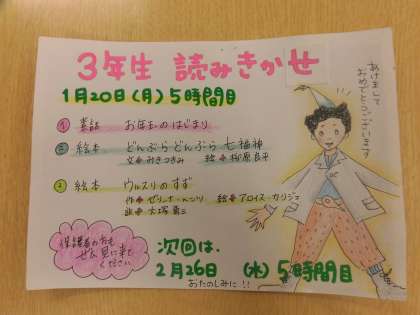 3年生 読みきかせ
1月20日(月)5時間目
① 昔話 お年玉のはじまり
② 絵本 どんぶらどんぶら七福神
文 みきつきみ 絵 柳原良平
③ 絵本 ウルスリのすず
作 ゼリーナ・ヘンツ 絵 アロイス・カリジェ
訳 大塚勇三
保護者の方も
ぜひ見に来て
ください
次回は、
2月26日 (水)5時間目
おたのしみに!!
あけまして
おめでとうございます